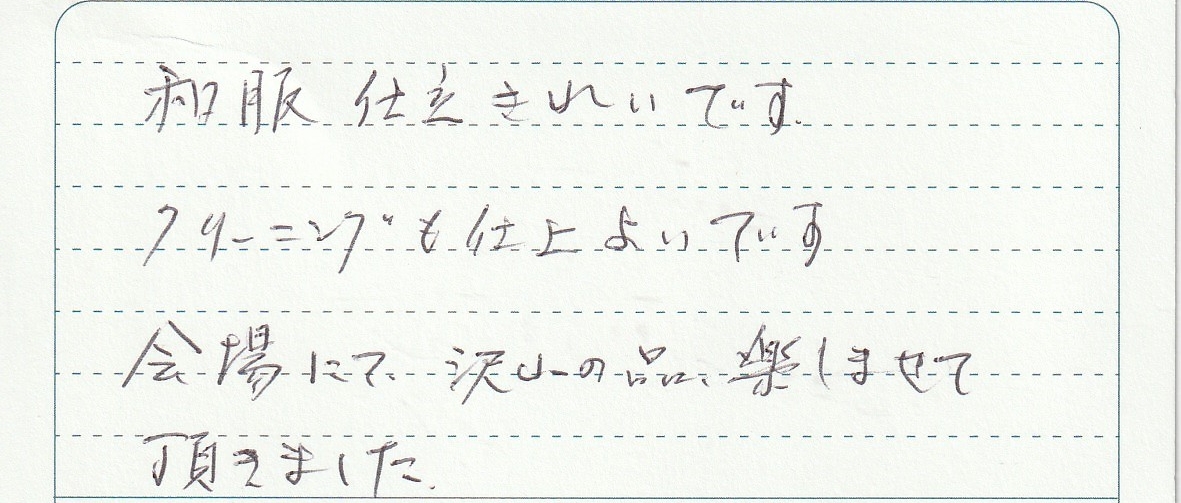 和服 仕立きれいです.
クリーニングも仕上よいです
会場にて、沢山の品、楽しませて
頂きました.